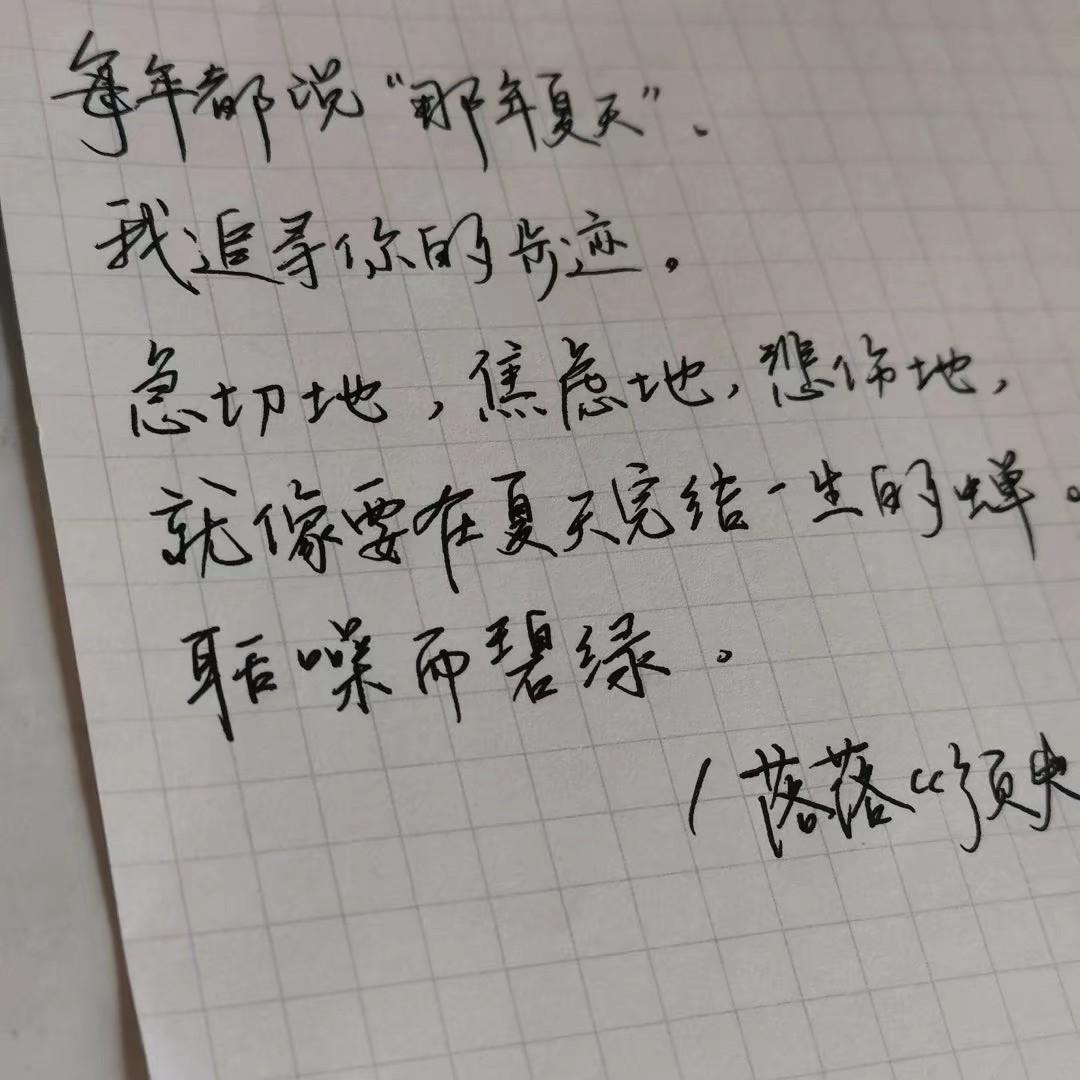 每年都说“那年夏天”、
我追寻你的步迹。
急切地,焦虑地,悲伤地,
就像要在夏天完结一生的蝉。
聒噪而碧绿。
/落落《须臾